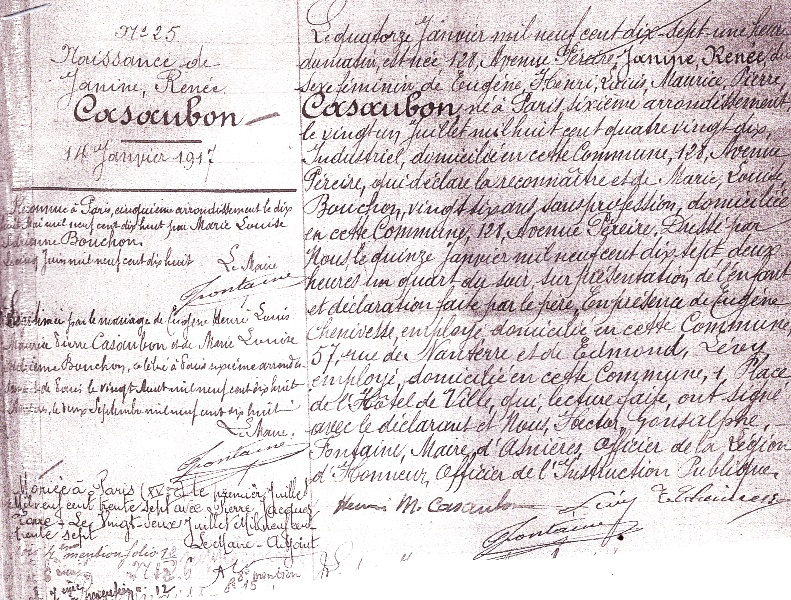 N° 25
Naissance de
Janine, Renée
Casaubon
14 Janvier 1917
Reconnue à Paris, cinquième arrondissement le dix
Mai mil neuf cent dix huit par Marie Louise
Bouchon.
Juin mil neuf cent dix huit Le Maire
Fontaine
par le mariage de Eugène Henri Louis
Maurice Pierre Casaubon et de Marie Louise
Bouchon, célébré à Paris sixième
le vingt Août mil neuf cent dix huit
le deux Septembre mil neuf cent dix huit
Le Maire.
Fontaine
Mariée à Paris (XVe) le premier Juillet
Mil neuf cent trente sept avec Pierre Jacques
Le Vingt-deux Juillet Mil neuf cent
trente sept Le Maire-Adjoint
mention folio 12
mention
Le quatorze Janvier mil neuf cent dix-sept une heure
du matin, est née 128, Avenue Péreire, Janine, Renée, du
sexe féminin de Eugène, Henri, Louis, Maurice, Pierre,
Casaubon, né à Paris, sixième arrondissement,
le vingt un Juillet mil huit cent quatre vingt dix,
Industriel, domicilié en cette Commune, 128, Avenue
Péreire, qui déclare la reconnaître et de Marie, Louise
Bouchon, vingt six ans, sans profession, domiciliée
en cette Commune, 128, Avenue Péreire. Dressé par
Nous, le quinze Janvier mil neuf cent dix-sept deux
heures un quart du soir, sur présentation de l'enfant
et déclaration faite par le père, En présence de Eugène
Chenivesse, employé domicilié en cette Commune,
57, rue de Nanterre et de Edmond, Lévy
employé, domicilié en cette Commune, 1, Place
de l'Hôtel de Ville, qui, lecture faite, ont signé
avec le déclarant et Nous, Hector, Gonsalphe, -
Fontaine, Maire, d'Asnières, Officier de la Légion
d'Honneur, Officier de l'Instruction Publique.
Henri M. Casaubon Lévy
Fontaine